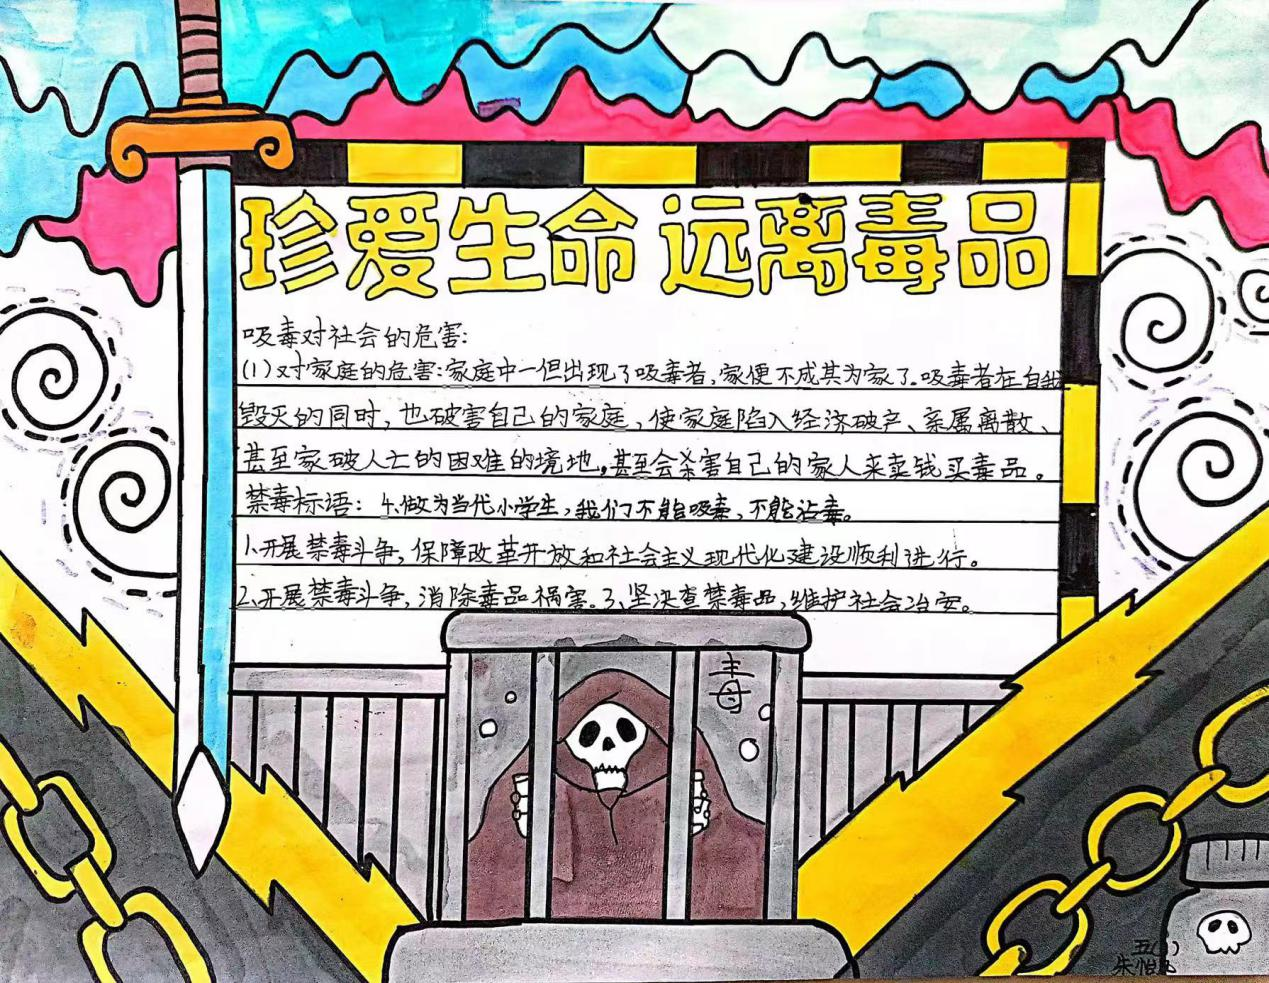 珍爱生命 远离毒品
吸毒对社会的危害:
(1)对家庭的危害:家庭中一但出现了吸毒者,家便不成其为家了.吸毒者在自我
毁灭的同时,也破害自己的家庭,使家庭陷入经济破产、亲属离散、
甚至家破人亡的困难的境地,甚至会杀害自己的家人来卖钱买毒品。
禁毒标语:4.做为当代小学生,我们不能吸毒,不能沾毒。
1.开展禁毒斗争,保障改革开放和社会主义现代化建设顺利进行。
2.开展禁毒斗争,消除毒品祸害.3、坚决查禁毒品,维护社会治安。
毒
五( )
朱怡